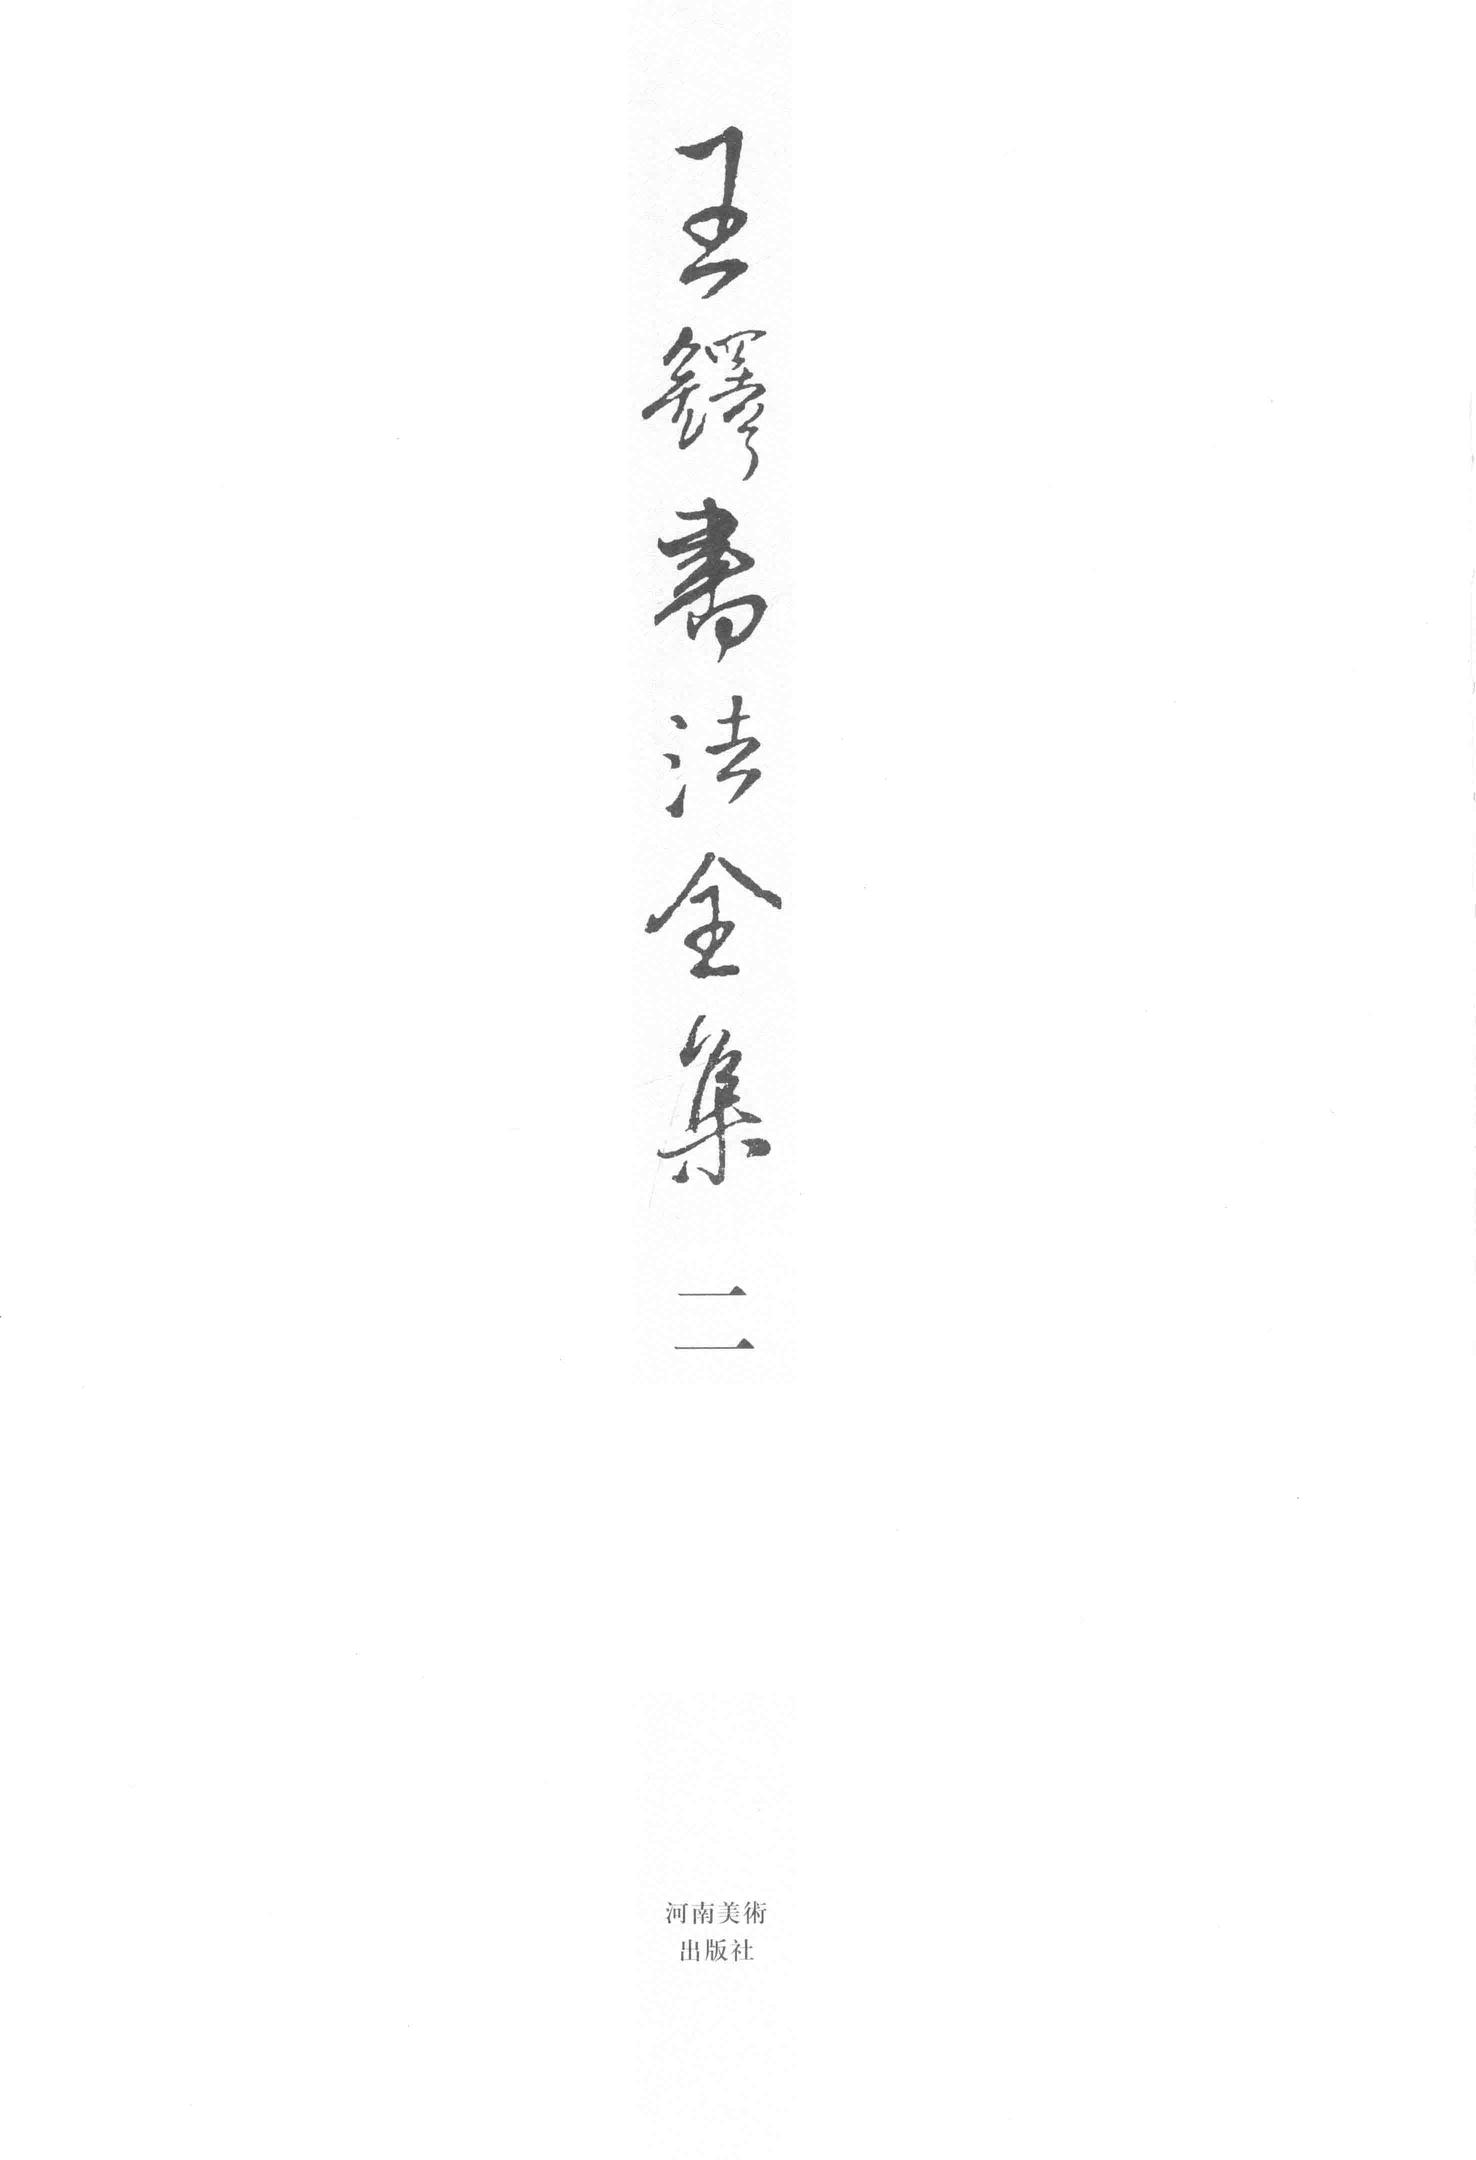 王鐸書法全集 二
河南美術
出版社